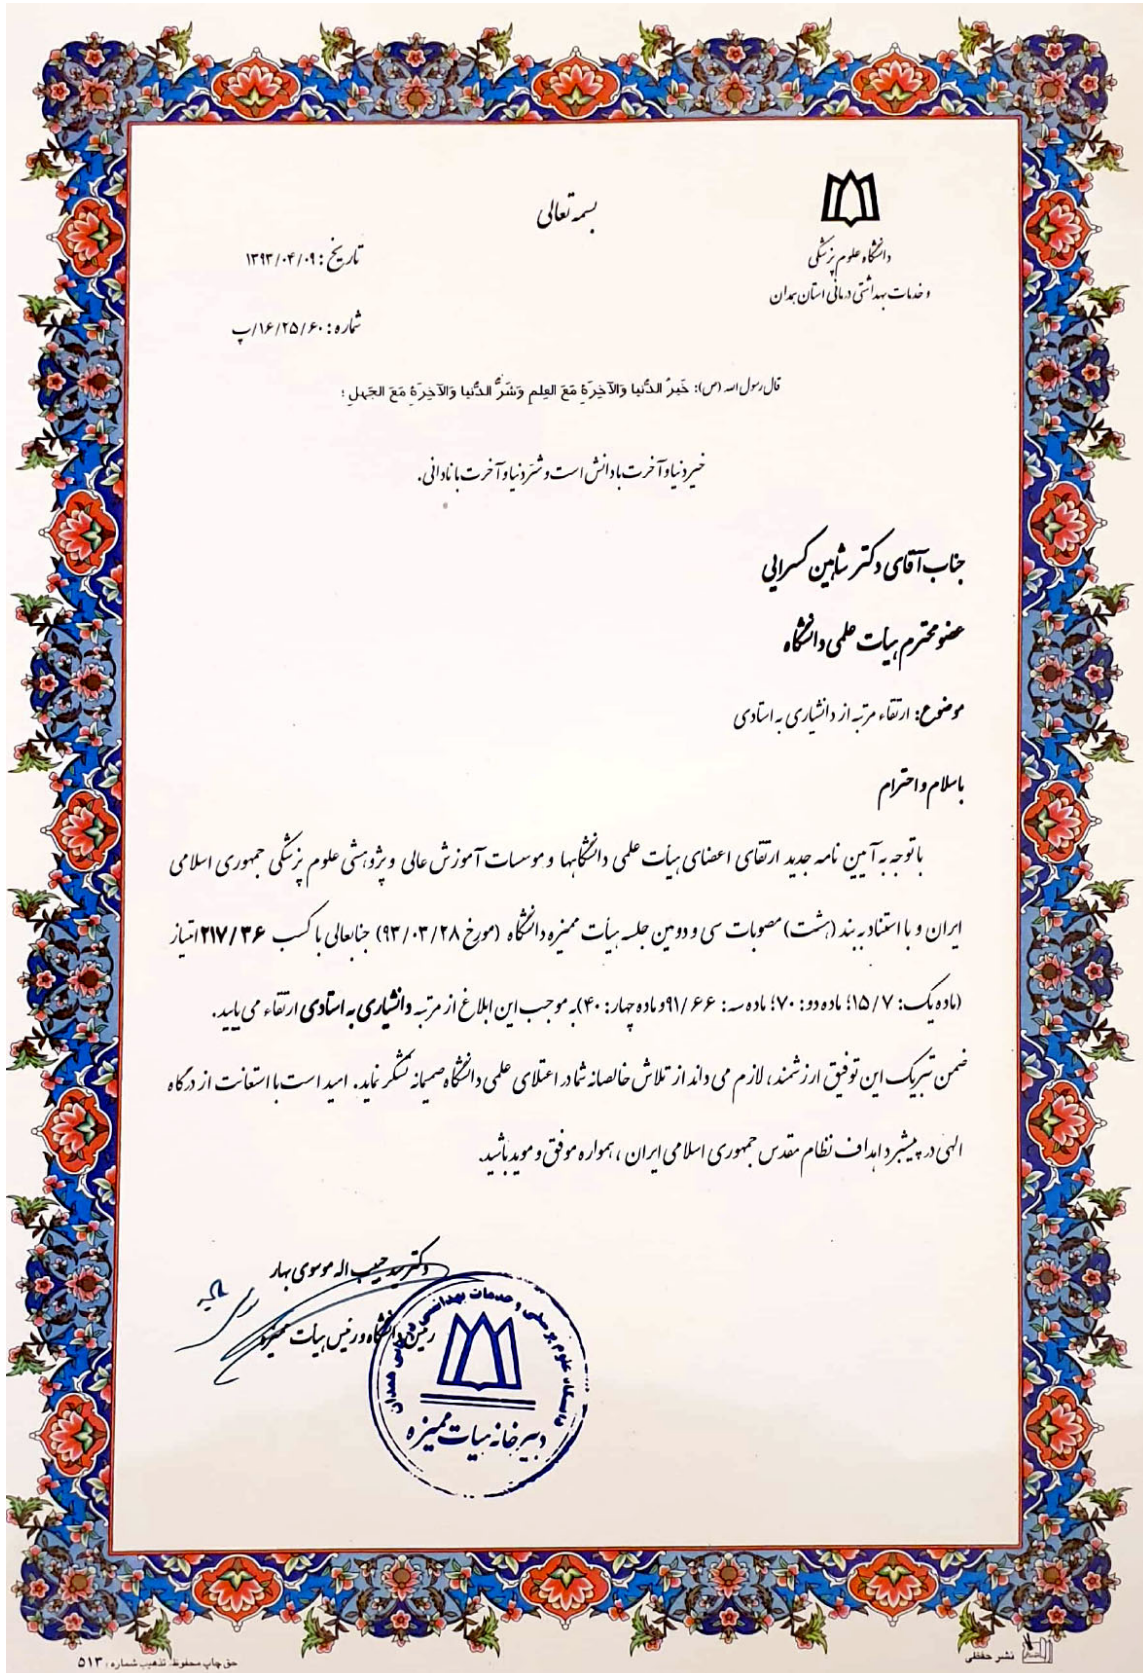 بسمه تعالی
دانشگاه علوم پزشکی
و خدمات بهداشتی درمانی استان همدان
تاریخ : ۱۳۹۳/۰۴/۰۹
شماره : ۱۶/۲۵/۶۰/پ
قال رسول الله (ص): خَیرُ الدُّنیا وَالآخِرَةِ مَعَ العِلمِ وَشَرُّ الدُّنیا وَالآخِرَةِ مَعَ الجَهلِ ؛
خیر دنیا و آخرت با دانش است و شرّ دنیا و آخرت با نادانی.
جناب آقای دکتر شاهین کسرایی
عضو محترم هیأت علمی دانشگاه
موضوع: ارتقاء مرتبه از دانشیاری به استادی
با سلام و احترام
با توجه به آیین نامه جدید ارتقای اعضای هیأت علمی دانشگاهها و موسسات آموزش عالی و پژوهشی علوم پزشکی جمهوری اسلامی
ایران و با استناد به بند (هشت) مصوبات سی و دومین جلسه هیأت ممیزه دانشگاه (مورخ ۹۳/۰۳/۲۸) جنابعالی با کسب ۲۱۷/۳۶ امتیاز
(ماده یک: ۱۵/۷؛ ماده دو: ۷۰؛ ماده سه: ۹۱/۶۶ و ماده چهار: ۴۰) به موجب این ابلاغ از مرتبه دانشیاری به استادی ارتقاء می یابید.
ضمن تبریک این توفیق ارزشمند، لازم می داند از تلاش خالصانه شما در اعتلای علمی دانشگاه صمیمانه تشکر نماید. امید است با استعانت از درگاه
الهی در پیشبرد اهداف نظام مقدس جمهوری اسلامی ایران ، همواره موفق و موید باشید.
دکتر سید حبیب اله موسوی بهار
رئیس دانشگاه و رئیس هیأت ممیزه
دانشگاه علوم پزشکی و خدمات بهداشتی درمانی همدان
دبیرخانه هیات ممیزه
نشر حفظی
حق چاپ محفوظ تذهیب شماره : ۵۱۳